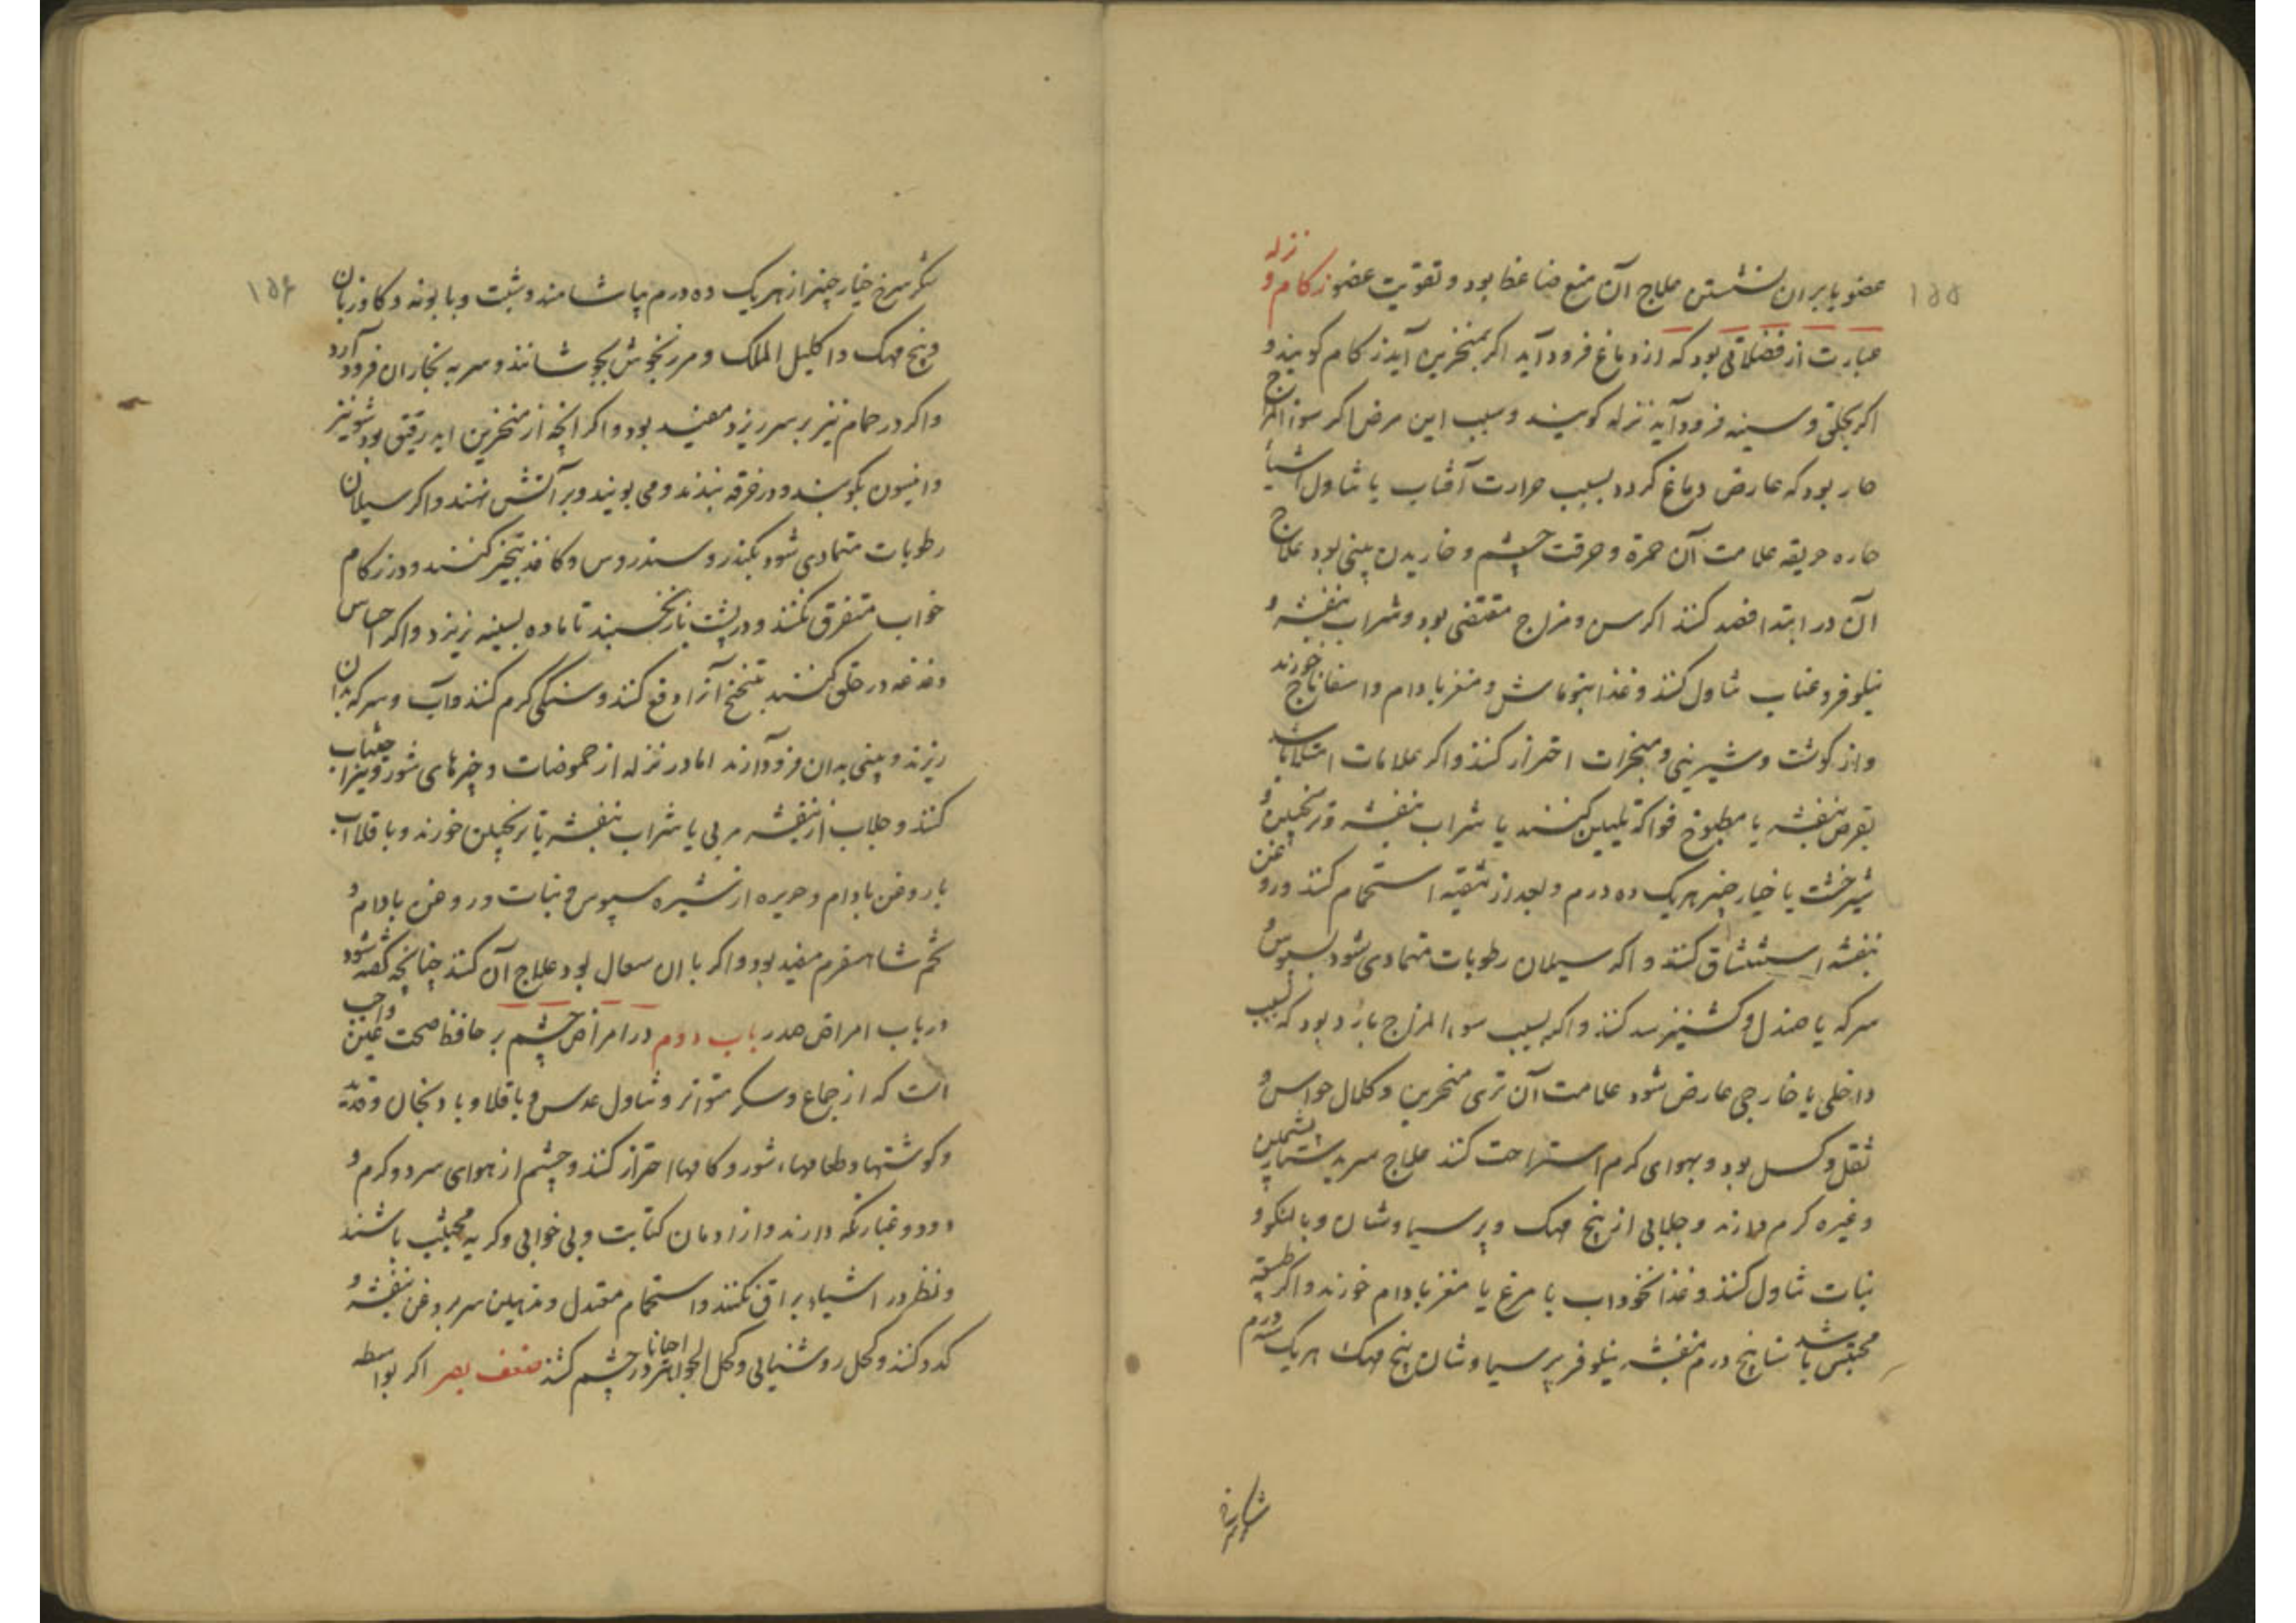 ۱۵۵
عضو یا بران نشستن علاج آن منع ضاغط بود و تقویت عضو زکام و نزله
عبارت از فضلاتی بود که از دماغ فرود آید اکر بمنخرین آید زکام کویند و
اکر بحلق و سینه فرود آید نزله کویند و سبب این مرض اکر سوء المزاج
حار بود که عارض دماغ کردد بسبب حرارت آفتاب یا تناول اشیاء
حاره حریقه علامت آن حمرة و حرقت چشم و خاریدن بینی بود علاج
آن در ابتدا فصد کنند اکر سن و مزاج مقتضی بود و شراب بنفشه و
نیلوفر و عناب تناول کنند و غذا بنوماش و مغز بادام و اسفاناج خورند
و از کوشت و شیرینی و مبخرات احتراز کنند و اکر علامات امتلا باشد
بقرص بنفشه یا مطبوخ فواکه تلیین کنند یا شراب بنفشه و ترنجبین و
شیرخشت یا خیارچنبر هریک ده درم و بعد از تنقیه استحمام کنند و روغن
بنفشه استنشاق کنند و اکر سیلان رطوبات متمادی شود بسبوس و
سرکه یا صندل و کشنیز سد کنند و اکر بسبب سوء المزاج بارد بود که بسبب
داخلی یا خارجی عارض شود علامت آن تری منخرین و کلال حواس و
ثقل و کسل بود و بهوای کرم استراحت کند علاج سر بدستار پشمین
و غیره کرم دارند و جلابی از بنج مهک و پرسیاوشان و بالنکو و
نبات تناول کنند و غذا نخوداب با مرغ یا مغز بادام خورند و اکر طبیعة
محتبس باشد سنا پنج درم بنفشه نیلوفر پرسیاوشان بنج مهک هریک سه درم
۱۵۶
شکر سرخ خیارچنبر از هریک ده درم بیاشامند و شبت و بابونه و کاوزبان
و بنج مهک و اکلیل الملک و مرزنجوش بجوشانند و سر به بخار ان فرود آرد
و اکر در حمام نیز بر سر ریزد مفید بود و اکر انچه از منخرین اید رقیق بود شونیز
و انیسون بکوبند و در خرقه بندند و می بویند و بر آتش نهند و اکر سیلان
رطوبات متمادی شود بکندر و سندروس و کاغذ تبخیر کنند و در زکام
خواب متفرق نکنند و در پشت باز نخسبند تا ماده بسینه نریزد و اکر احساس
دغدغه در حلق کنند بتنحنح آنرا دفع کنند و سنکی کرم کنند و آب و سرکه بدان
ریزند و بینی بدان فرود آرند اما در نزله از حموضات و چیزهای شور و تیز اجتناب
کنند و جلاب از بنفشه مربی یا شراب بنفشه یا ترنجبین خورند و باقلااب
با روغن بادام و حریره از نشیره سبوس و نبات و روغن بادام و
تخم شاهسفرم مفید بود و اکر با ان سعال بود علاج آن کنند چنانچه کفته شود
در باب امراض صدر باب دوم در امراض چشم بر حافظ صحت عین واجب
است که از جماع و سکر متواتر و تناول عدس و باقلا و بادنجان و
و کوشتها و طعامهاء شور و کامها احتراز کنند و چشم از هوای سرد و کرم و
دود و غبار نکه دارند و از ادمان کتابت و بی خوابی و کریه مجتنب باشند
و نظر در اشیاء براق نکنند و استحمام معتدل و تدهین سر بروغن بنفشه و
کدو کنند و کحل روشنیایی و کحل الجواهر احیانا در چشم کشند ضعف بصر اکر بواسطه